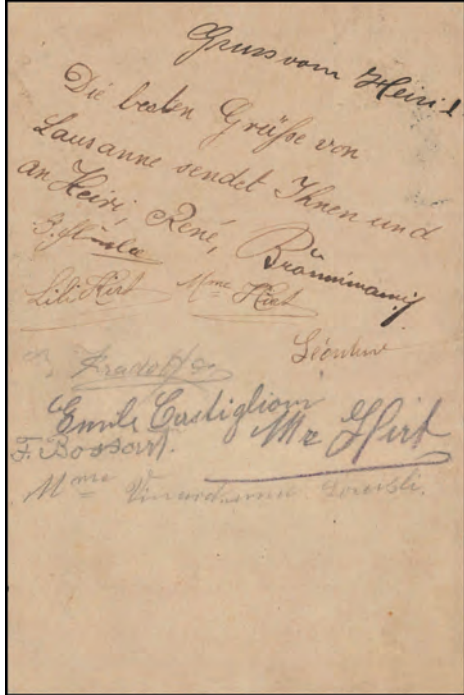 Gruss vom Heiri!
Die besten Grüße von
Lausanne sendet Ihnen und
an Heiri, René,
Lili Hirt Mme Hirt
Léontine
Emile Castiglioni
Mr Hirt
F. Bossart.
Mme